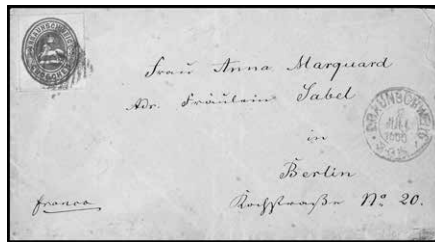 BRAUNSCHWEIG
Frau Anna Marquard
Adr. Fräulein Sabel
in
Berlin
Kochstraße No 20.
franco
BRAUNSCHWEIG
JULI